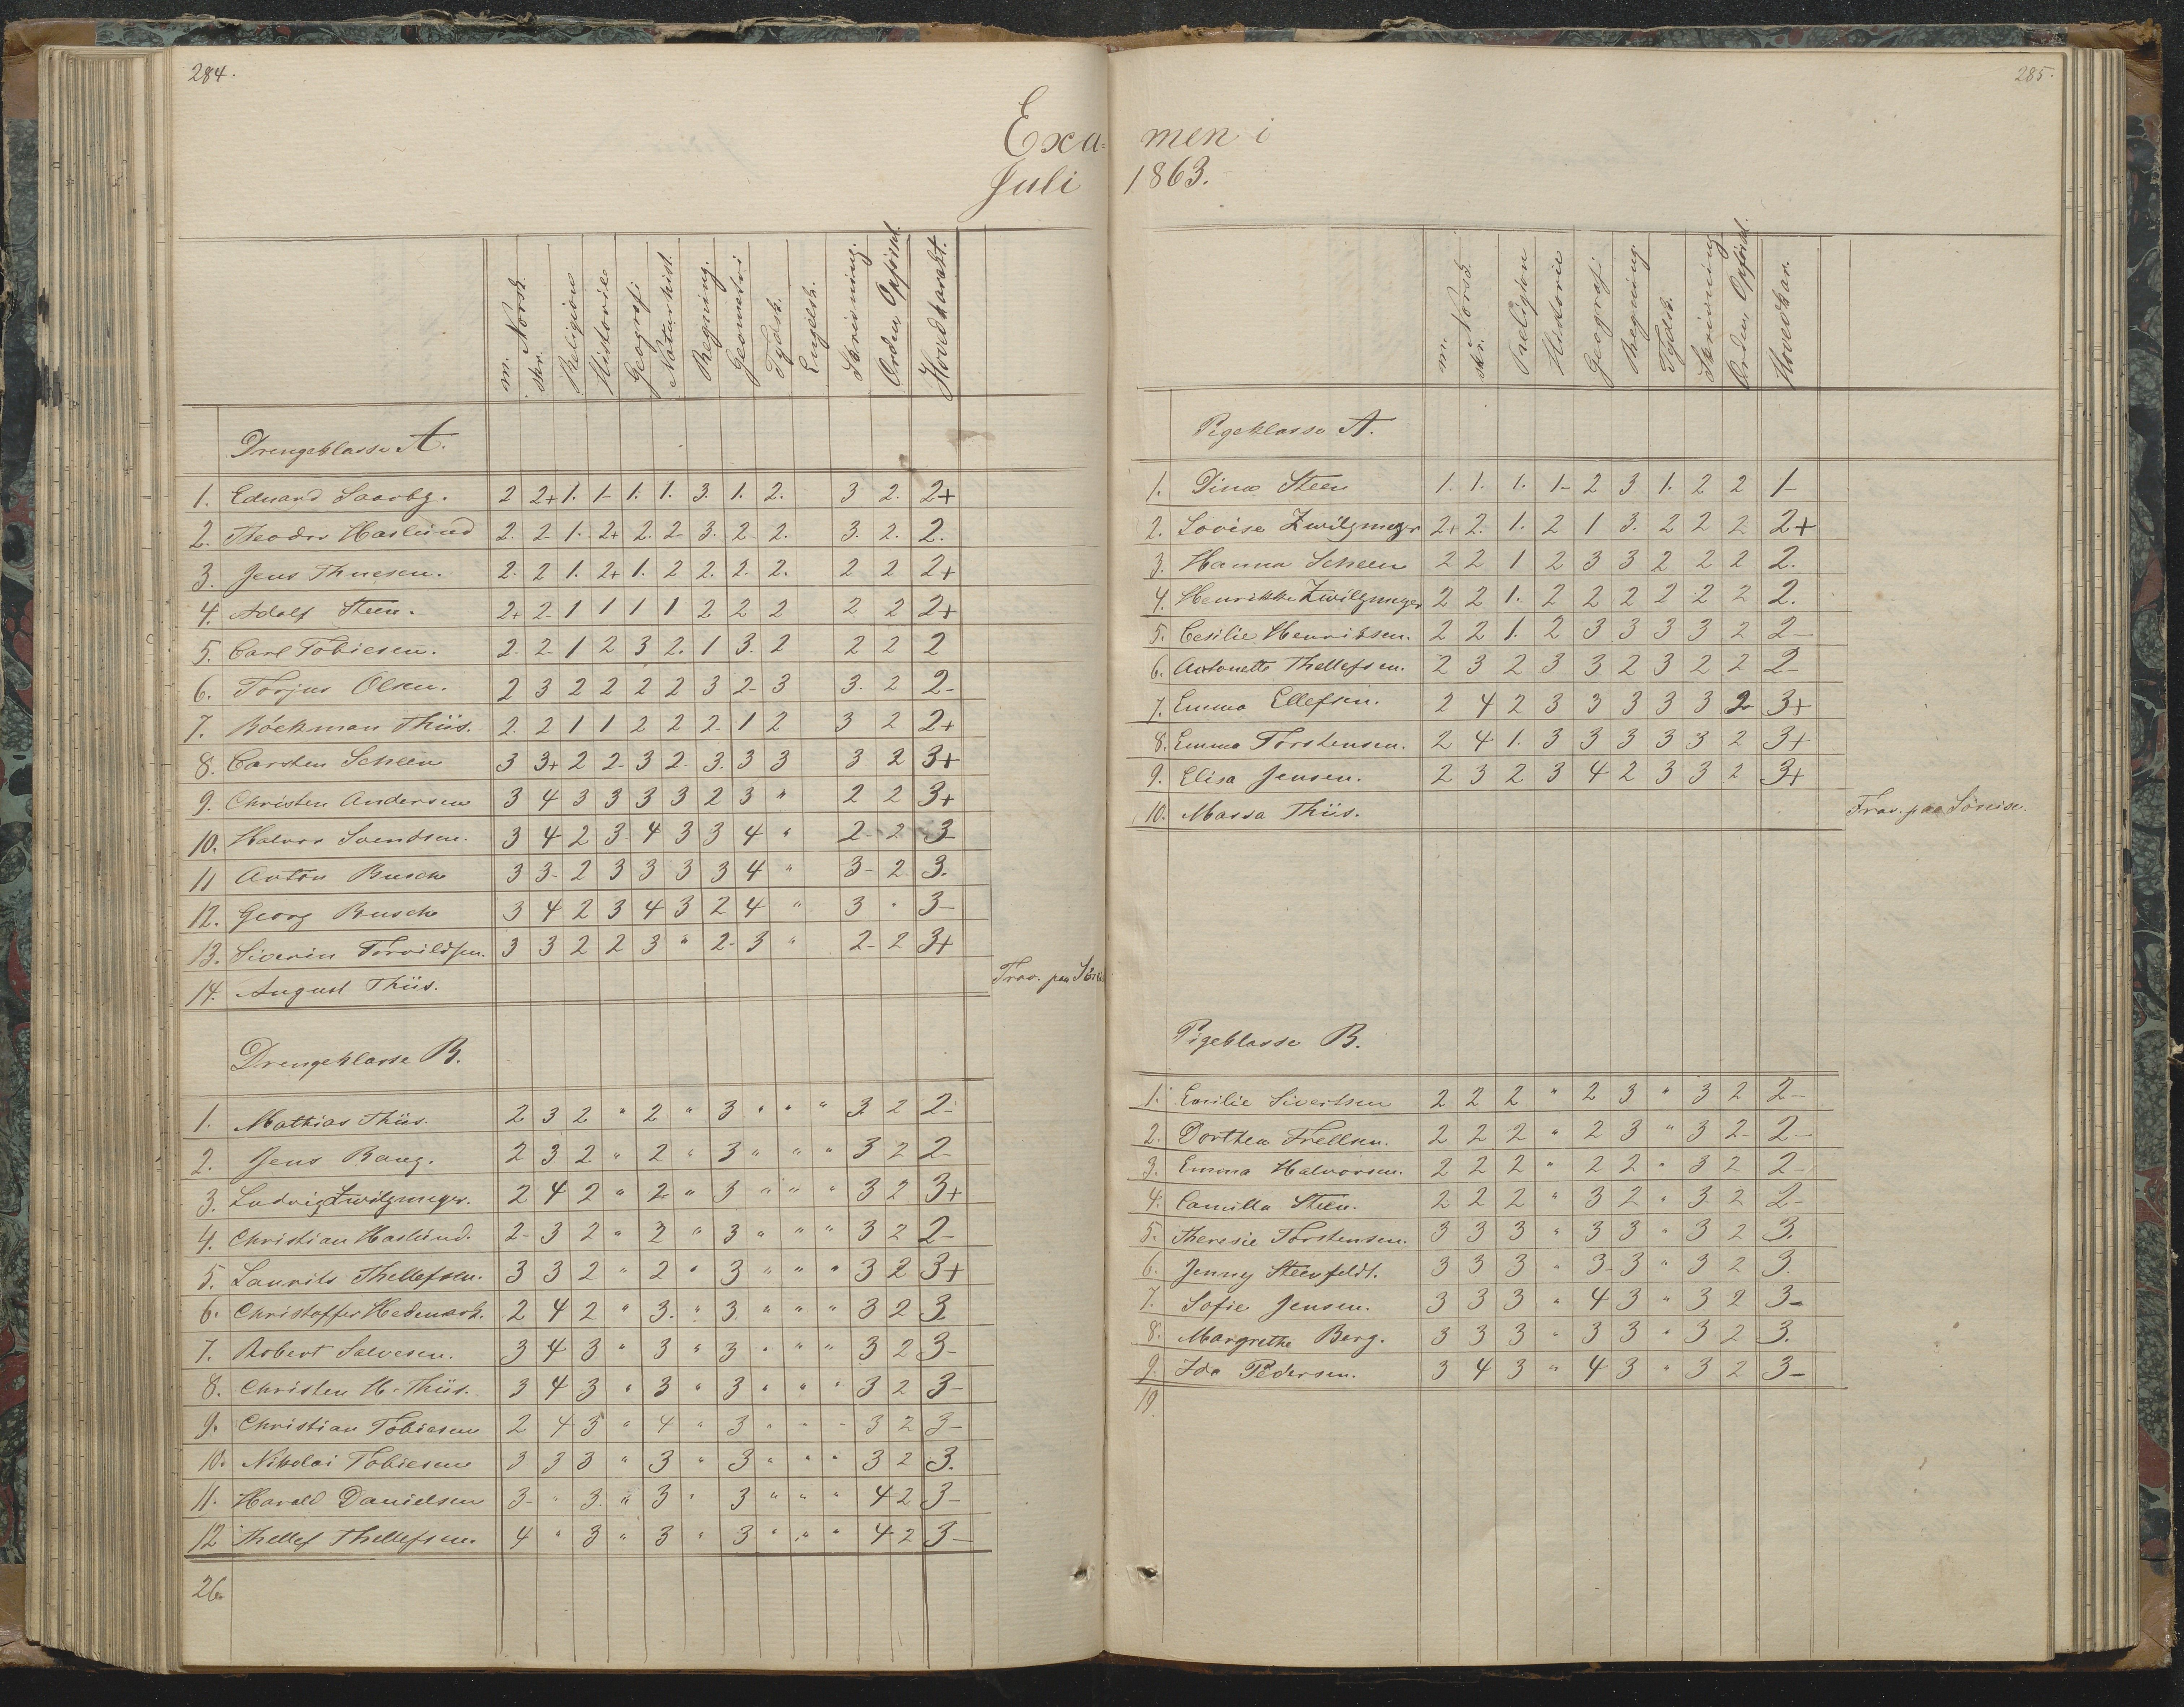 284.
Exa-
Juli
m. Norsk. skr. Religion Historie Geografi Naturhist. Regning. Geometri Tydsk. Engelsk. Skrivning. Orden, Opførsel. Hovedkarakt.
Drengeklasse A.
1. Eduard 2 2+ 1. 1- 1. 1. 3. 1. 2. 3 2. 2+
2. Theodor Haslund 2. 2- 1. 2+ 2. 2- 3. 2 2. 3. 2. 2.
3. Jens Thuesen. 2. 2 1. 2+ 1. 2 2. 2. 2. 2 2 2+
4. Adolf Steen. 2+ 2- 1 1 1 1 2 2 2 2 2 2+
5. Carl Tobiesen. 2- 2- 1 2 3 2. 1 3. 2 2 2 2
6. Torjus Olsen. 2 3 2 2 2 2 3 2- 3 3. 2 2-
7. Böckman Thiis. 2. 2 1 1 2 2 2- 1 2 3 2 2+
8. Carsten Scheen 3 3+ 2 2- 3 2- 3. 3 3 3 2 3+
9. Christen Andersen 3 4 3 3 3 3 2 3 " 2 2 3+
10. Halvor Svendsen. 3 4 2 3 4 3 3 4 " 2- 2 3
11 Anton Busch 3 3- 2 3 3 3 3 4 " 3- 2 3.
12. Georg Busch 3 4 2 3 4 3 2 4 " 3 " 3-
13. Siverin Torvildsen. 3 3 2 2 3 " 2- 3 " 2- 2 3+
14. August Thiis. Frav. paa
Drengeklasse B.
1. Mathias Thiis. 2 3 2 " 2 " 3 " " " 3 2 2-
2. Jens Bang. 2 3 2 " 2 " 3 " " " 3 2 2-
3. Ludvig Zwilgmeyer. 2 4 2 " 2 " 3 " " " 3 2 3+
4. Christian Haslund. 2- 3 2 " 2 " 3 " " " 3 2 2-
5. Laurits Thellefsen. 3 3 2 " 2 " 3 " " " 3 2 3+
6. Christoffer Hedemark. 2 4 2 " 3. " 3 " " " 3 2 3
7. Robert Salvesen. 3 4 3 " 3 " 3 " " " 3 2 3-
8. Christen H. Thiis. 3 4 3 " 3 " 3 " " " 3 2 3-
9. Christian Tobiesen 2 4 3 " 4 " 3 " " " 3 2 3-
10. Nikolai Tobiesen 3 3 3 " 3 " 3 " " " 3 2 3.
11. Harald Danielsen 3- " 3. " 3 " 3 " " " 4 2 3-
12 Thellef Thellefsen. 4 " 3 " 3 " 3 " " " 4 2 3-
26.
285.
men i
1863.
m. Norsk. skr. Religion Historie Geografi Regning. Tydsk. Skrivning Orden, Opførsel. Hovedkar.
Pigeklasse A.
1. Dina Steen 1. 1. 1. 1- 2 3 1. 2 2 1-
2. Lovise Zwilgmeyer 2+ 2. 1. 2 1 3. 2 2 2 2+
3. Hanna Scheen 2 2 1 2 3 3 2 2 2 2.
4. Henrikke Zwilgmeyer 2 2 1. 2 2 2 2 2 2 2.
5. Cesilie Henriksen. 2 2 1. 2 3 3 3 3 2 2-
6. Antonette Thellefsen. 2 3 2 3 3 2 3 2 2 2-
7. Emma Ellefsen. 2 4 2 3 3 3 3 3 2 3+
8. Emma Torstensen. 2 4 1. 3 3 3 3 3 2 3+
9. Elisa Jensen. 2 3 2 3 4 2 3 3 2 3+
10. Massa Thiis. Frav. paa
Pigeklasse B.
1. Emilie Sivertsen 2 2 2 " 2 3 " 3 2 2-
2. Dorthea Frellsen. 2 2 2 " 2 3 " 3 2- 2-
3. Emma Halvorsen. 2 2 2 " 2 2 " 3 2 2-
4. Camilla Steen. 2 2 2 " 3 2 " 3 2 2-
5. Theresie Torstensen. 3 3 3 " 3 3 " 3 2 3.
6. Jenny Steenfeldt. 3 3 3 " 3- 3 " 3 2 3.
7. Sofie Jensen. 3 3 3 " 4 3 " 3 2 3-
8. Margrethe Berg. 3 3 3 " 3 3 " 3 2 3.
9. Ida Pedersen. 3 4 3 " 4 3 " 3 2 3-
19.